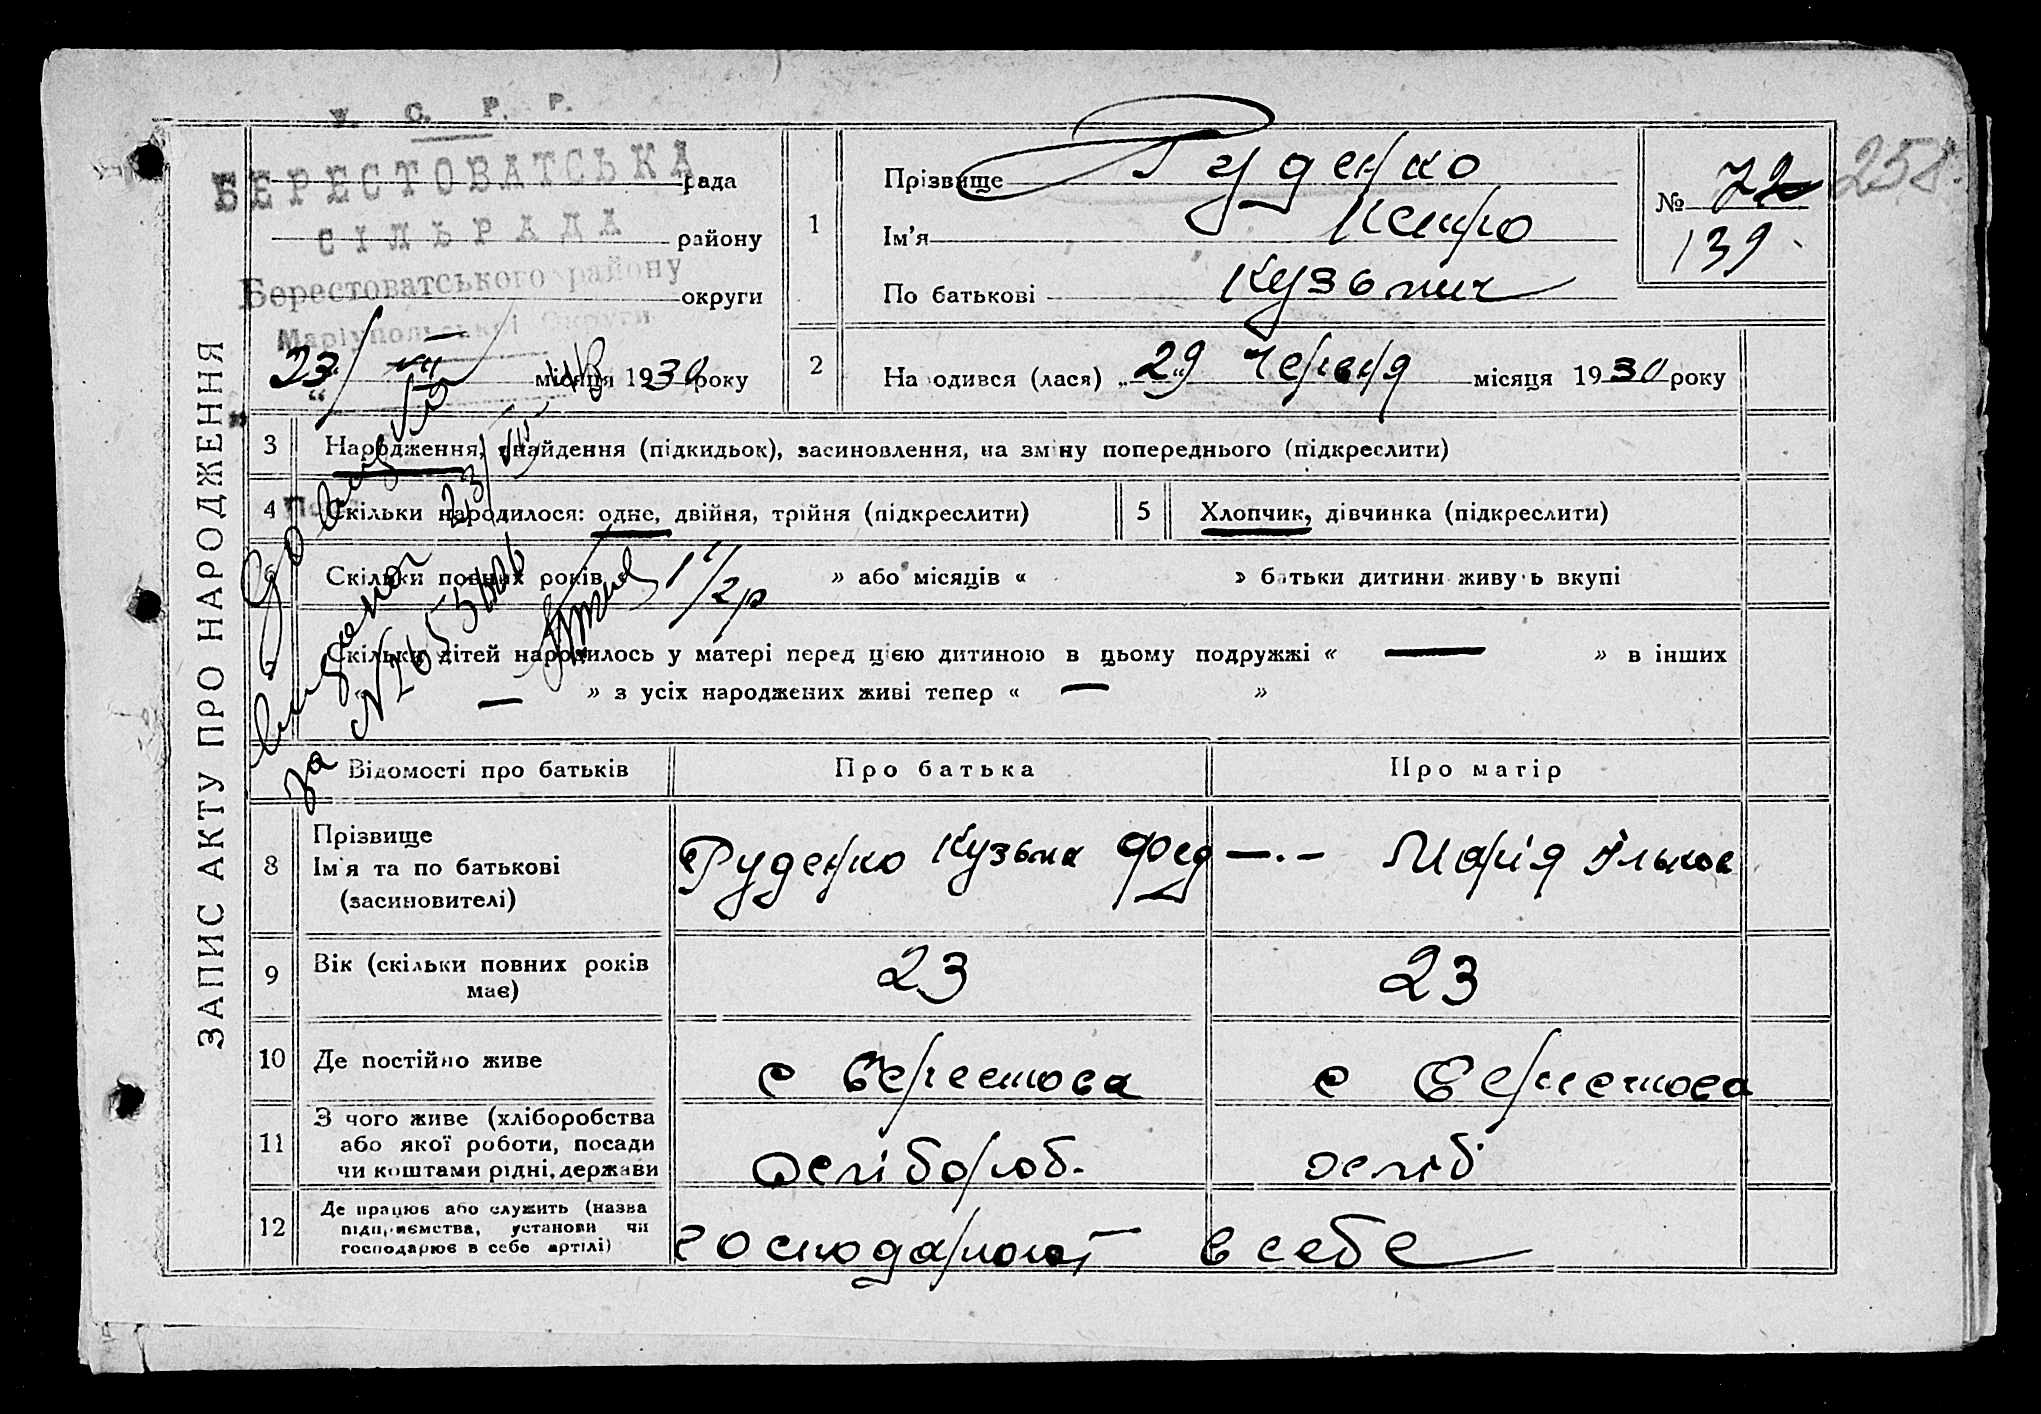 У. С. Р. Р.
БЕРЕСТОВАТСЬКА рада
СІЛЬРАДА району
Берестоватського району округи
Маріупольської Округи
23 VII місяця 1930 року
ЗАПИС АКТУ ПРО НАРОДЖЕННЯ
1 Прізвище Руденко
Ім'я Петро
По батькові Кузьмич
№ 72
139
258.
2 На одився (лася) „29“ червня місяця 1930 року
3 Народження, знайдення (підкидьок), засиновлення, на зміну попереднього (підкреслити)
4 Скільки народилося: одне, двійня, трійня (підкреслити) 5 Хлопчик, дівчинка (підкреслити)
6 Скільки повних років 1 1/2 р » або місяців « » батьки дитини живуть вкупі
7 Скільки дітей народилось у матері перед цією дитиною в цьому подружжі « — » в інших
— » з усіх народжених живі тепер « — »
23/VII
за №
Відомості про батьків Про батька Про матір
8 Прізвище
Ім'я та по батькові
(засиновителі)
Руденко Кузьма Фед —.— Марія Ільков
9 Вік (скільки повних років
має)
23 23
10 Де постійно живе с Берестова с Берестова
11 З чого живе (хліборобства
або якої роботи, посади
чи коштами рідні, держави
хлібороб. хліб
12 Де працює або служить (назва
підприємства, установи чи
господарює в себе артілі)
господарюют в себе